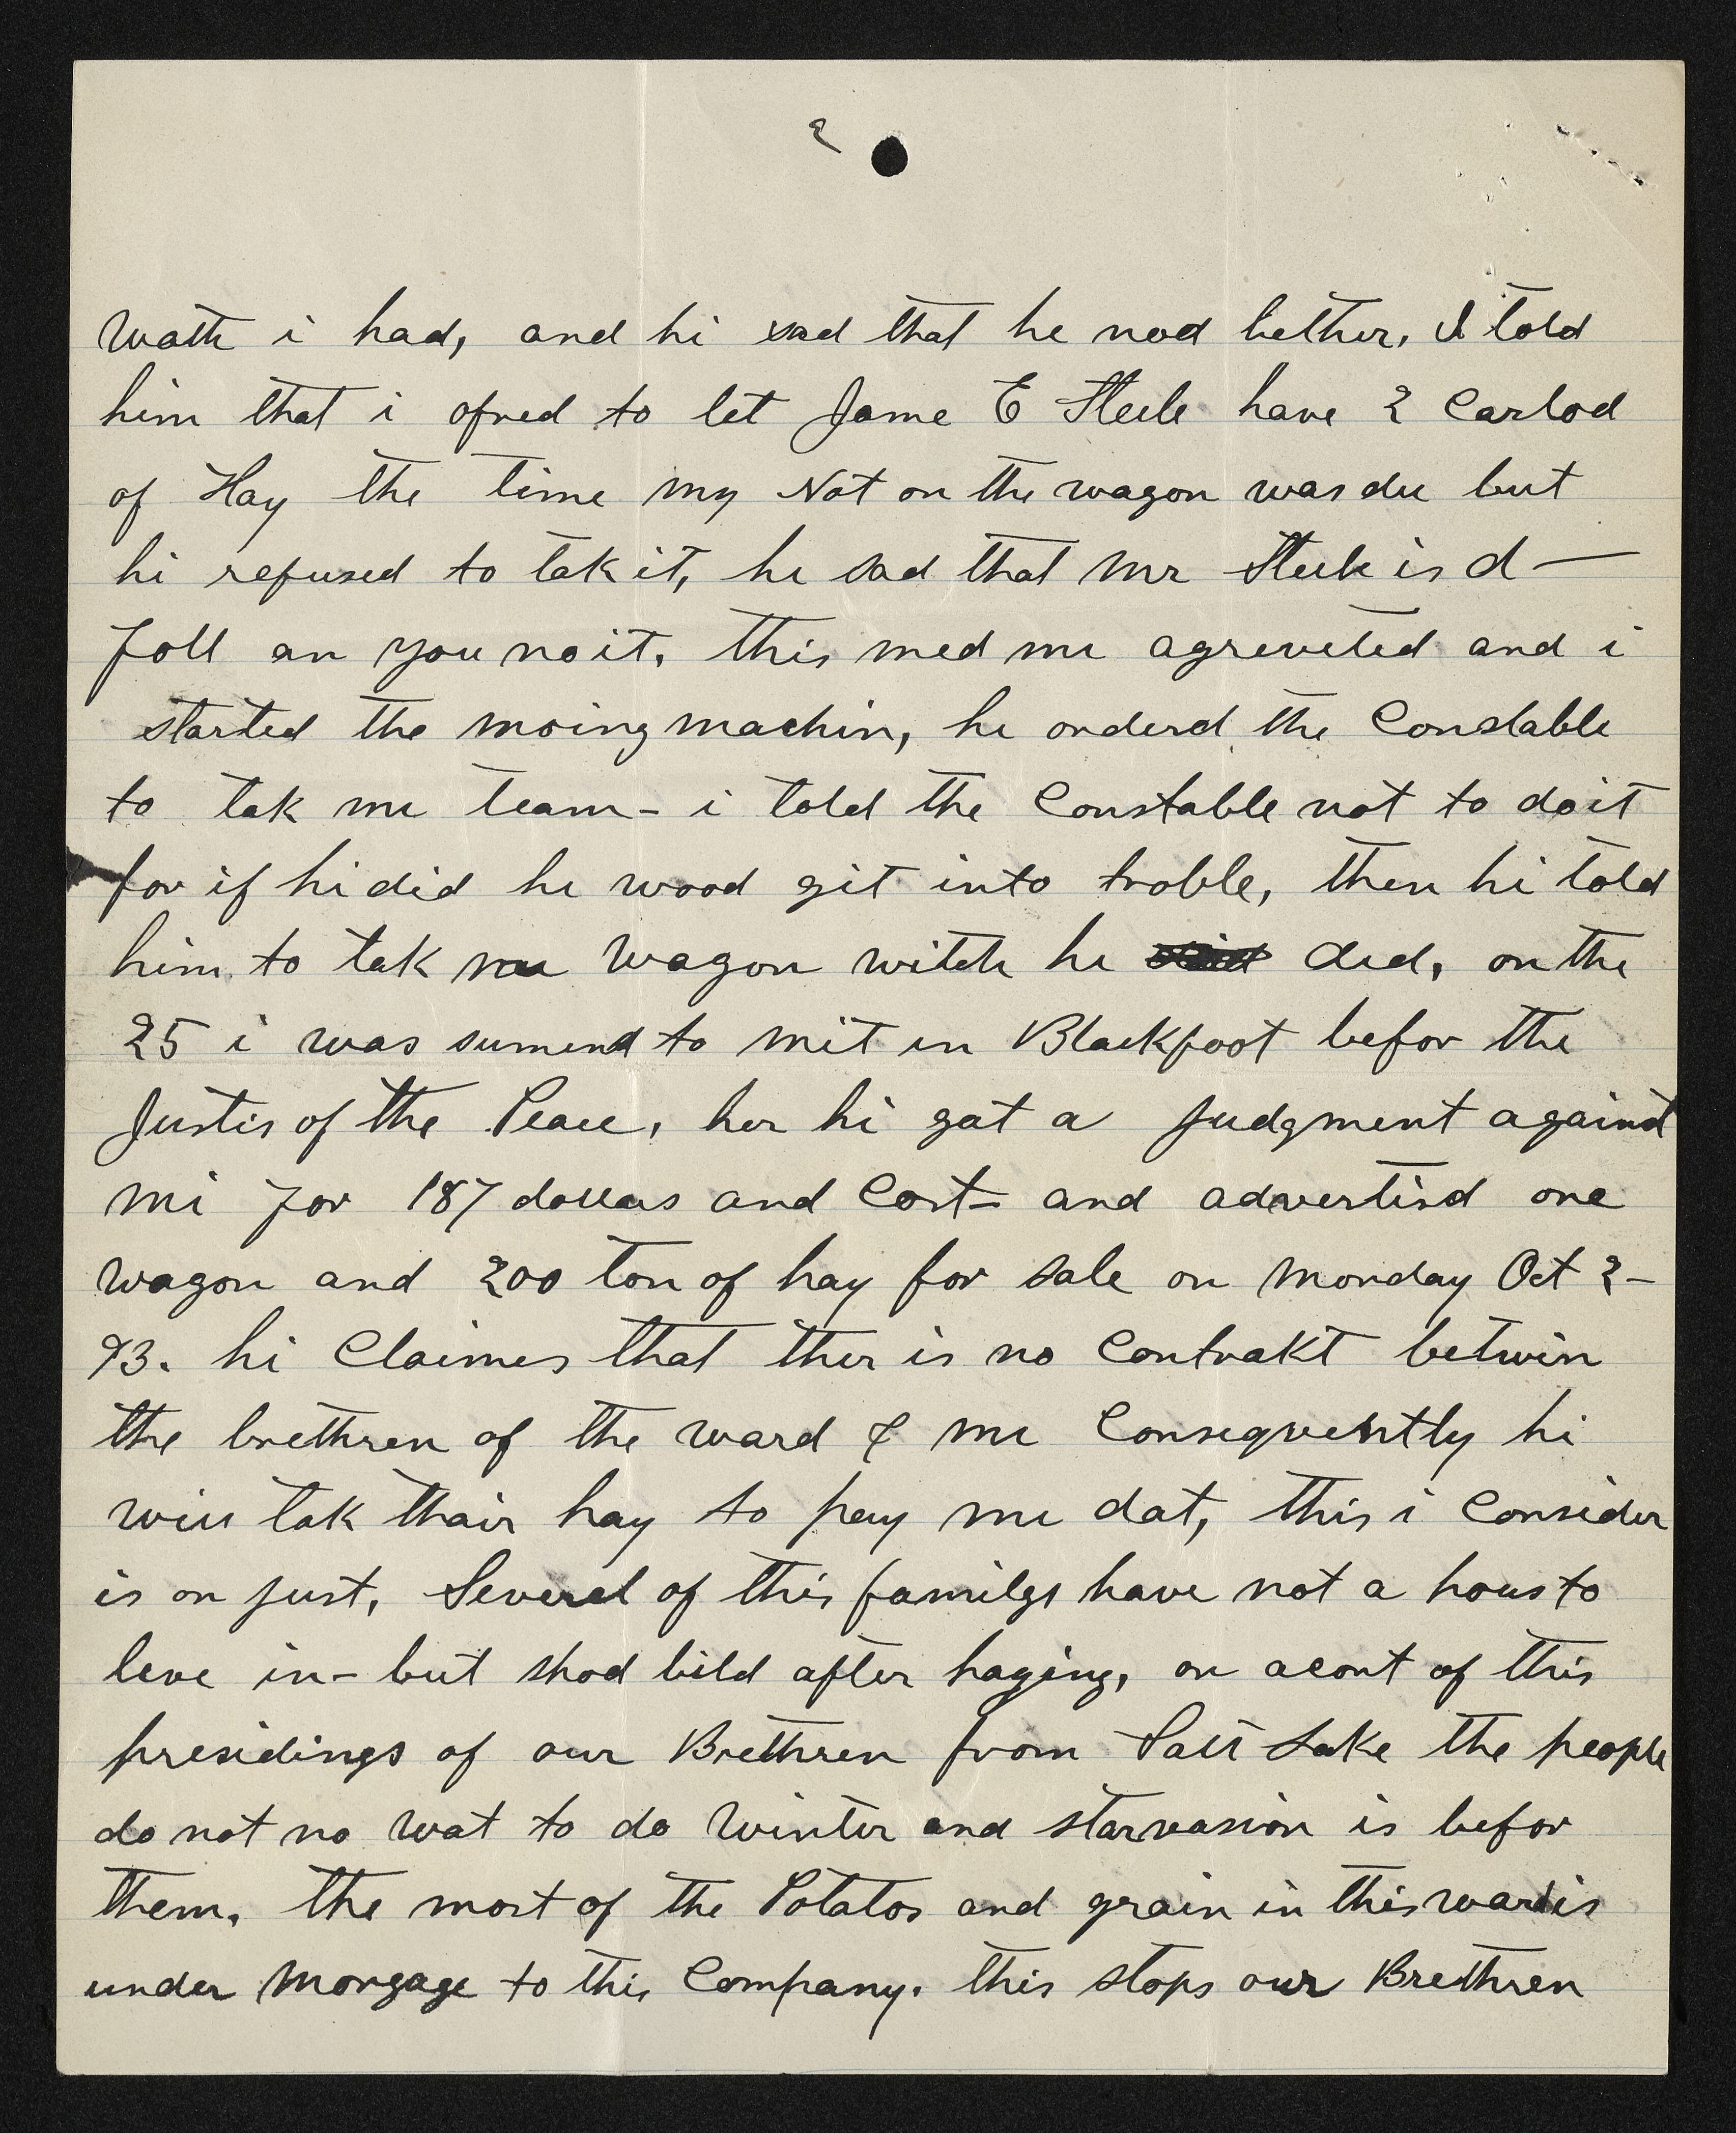 2
watte i had, and hi sad that he nod bether, I told
him that i ofred to let Jame E Steele have 2 Carlod
of Hay the time my Not on the wagon was du but
hi refused to tak it, he sad that Mr Steele is d—
foll an you no it, this med me agreveted and i
started the moing machin, he orderd the Constable
to tak me team – i told the Constable not to do it
for if hi did he wood git into troble, then hi told
him to tak me wagon witch he did, on the
25 i was sumend to mit in Blackfoot befor the
Justis of the Peace, her hi gat a judgment against
mi for 187 dollars and Cost – and advertisd one
wagon and 200 ton of hay for sale on Monday Oct 2–
93. hi Claimes that ther is no Contrakt betwin
the brethren of the ward & me Consequently hi
will tak thair hay to pay me dat, this i Consider
is on just, Severel of this familys have not a hous to
leve in – but shod bild after haying, on acont of this
presidings of our Brethren from Salt Lake the people
do not no wat to do winter and starvasion is befor
them, the most of the Potatos and grain in this ward is
under Morgage to this Company. this stops our Brethren